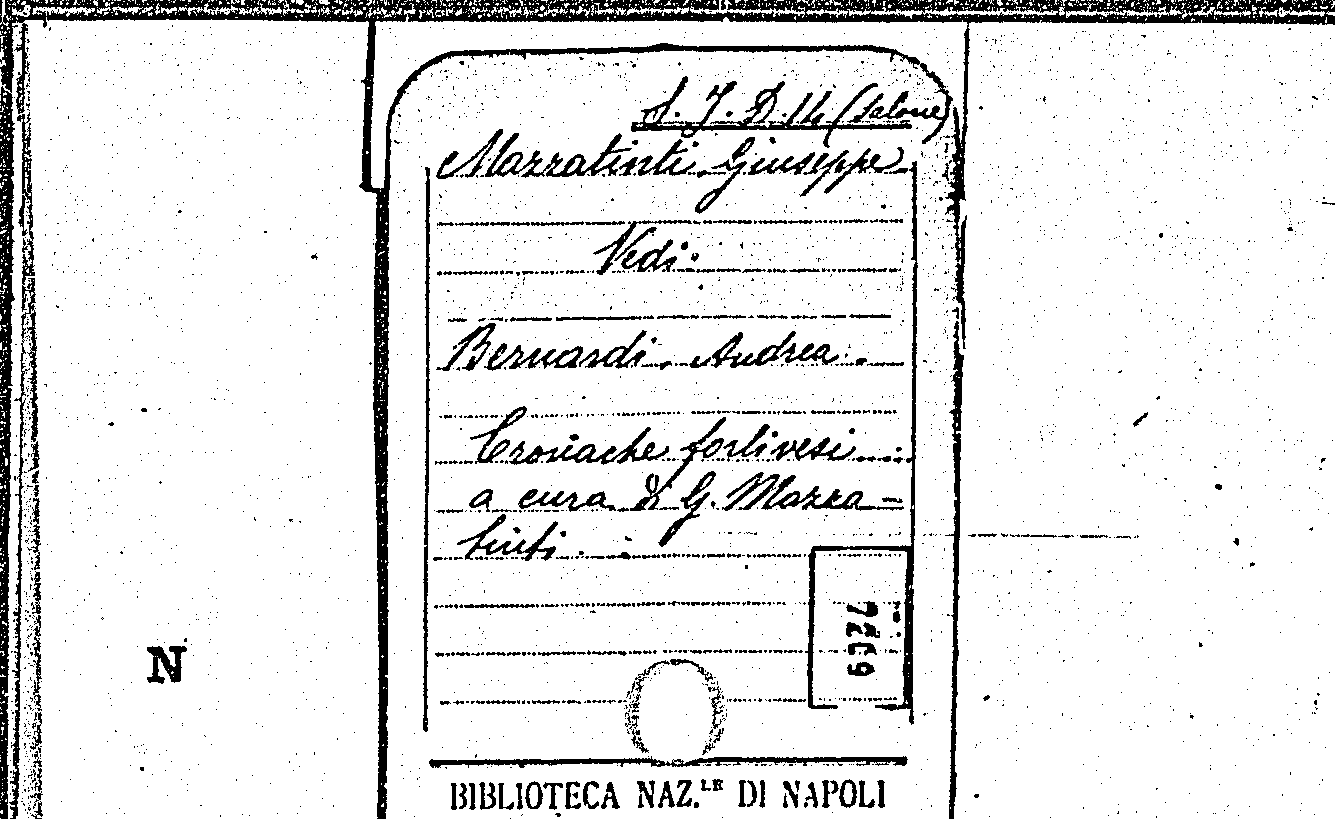 S. J. D. 14 (Salone)
Mazzatinti Giuseppe
Vedi:
Bernardi, Andrea.
Cronache forlivesi.....
a cura di G. Mazza-
tinti.
N
BIBLIOTECA NAZ.LE DI NAPOLI